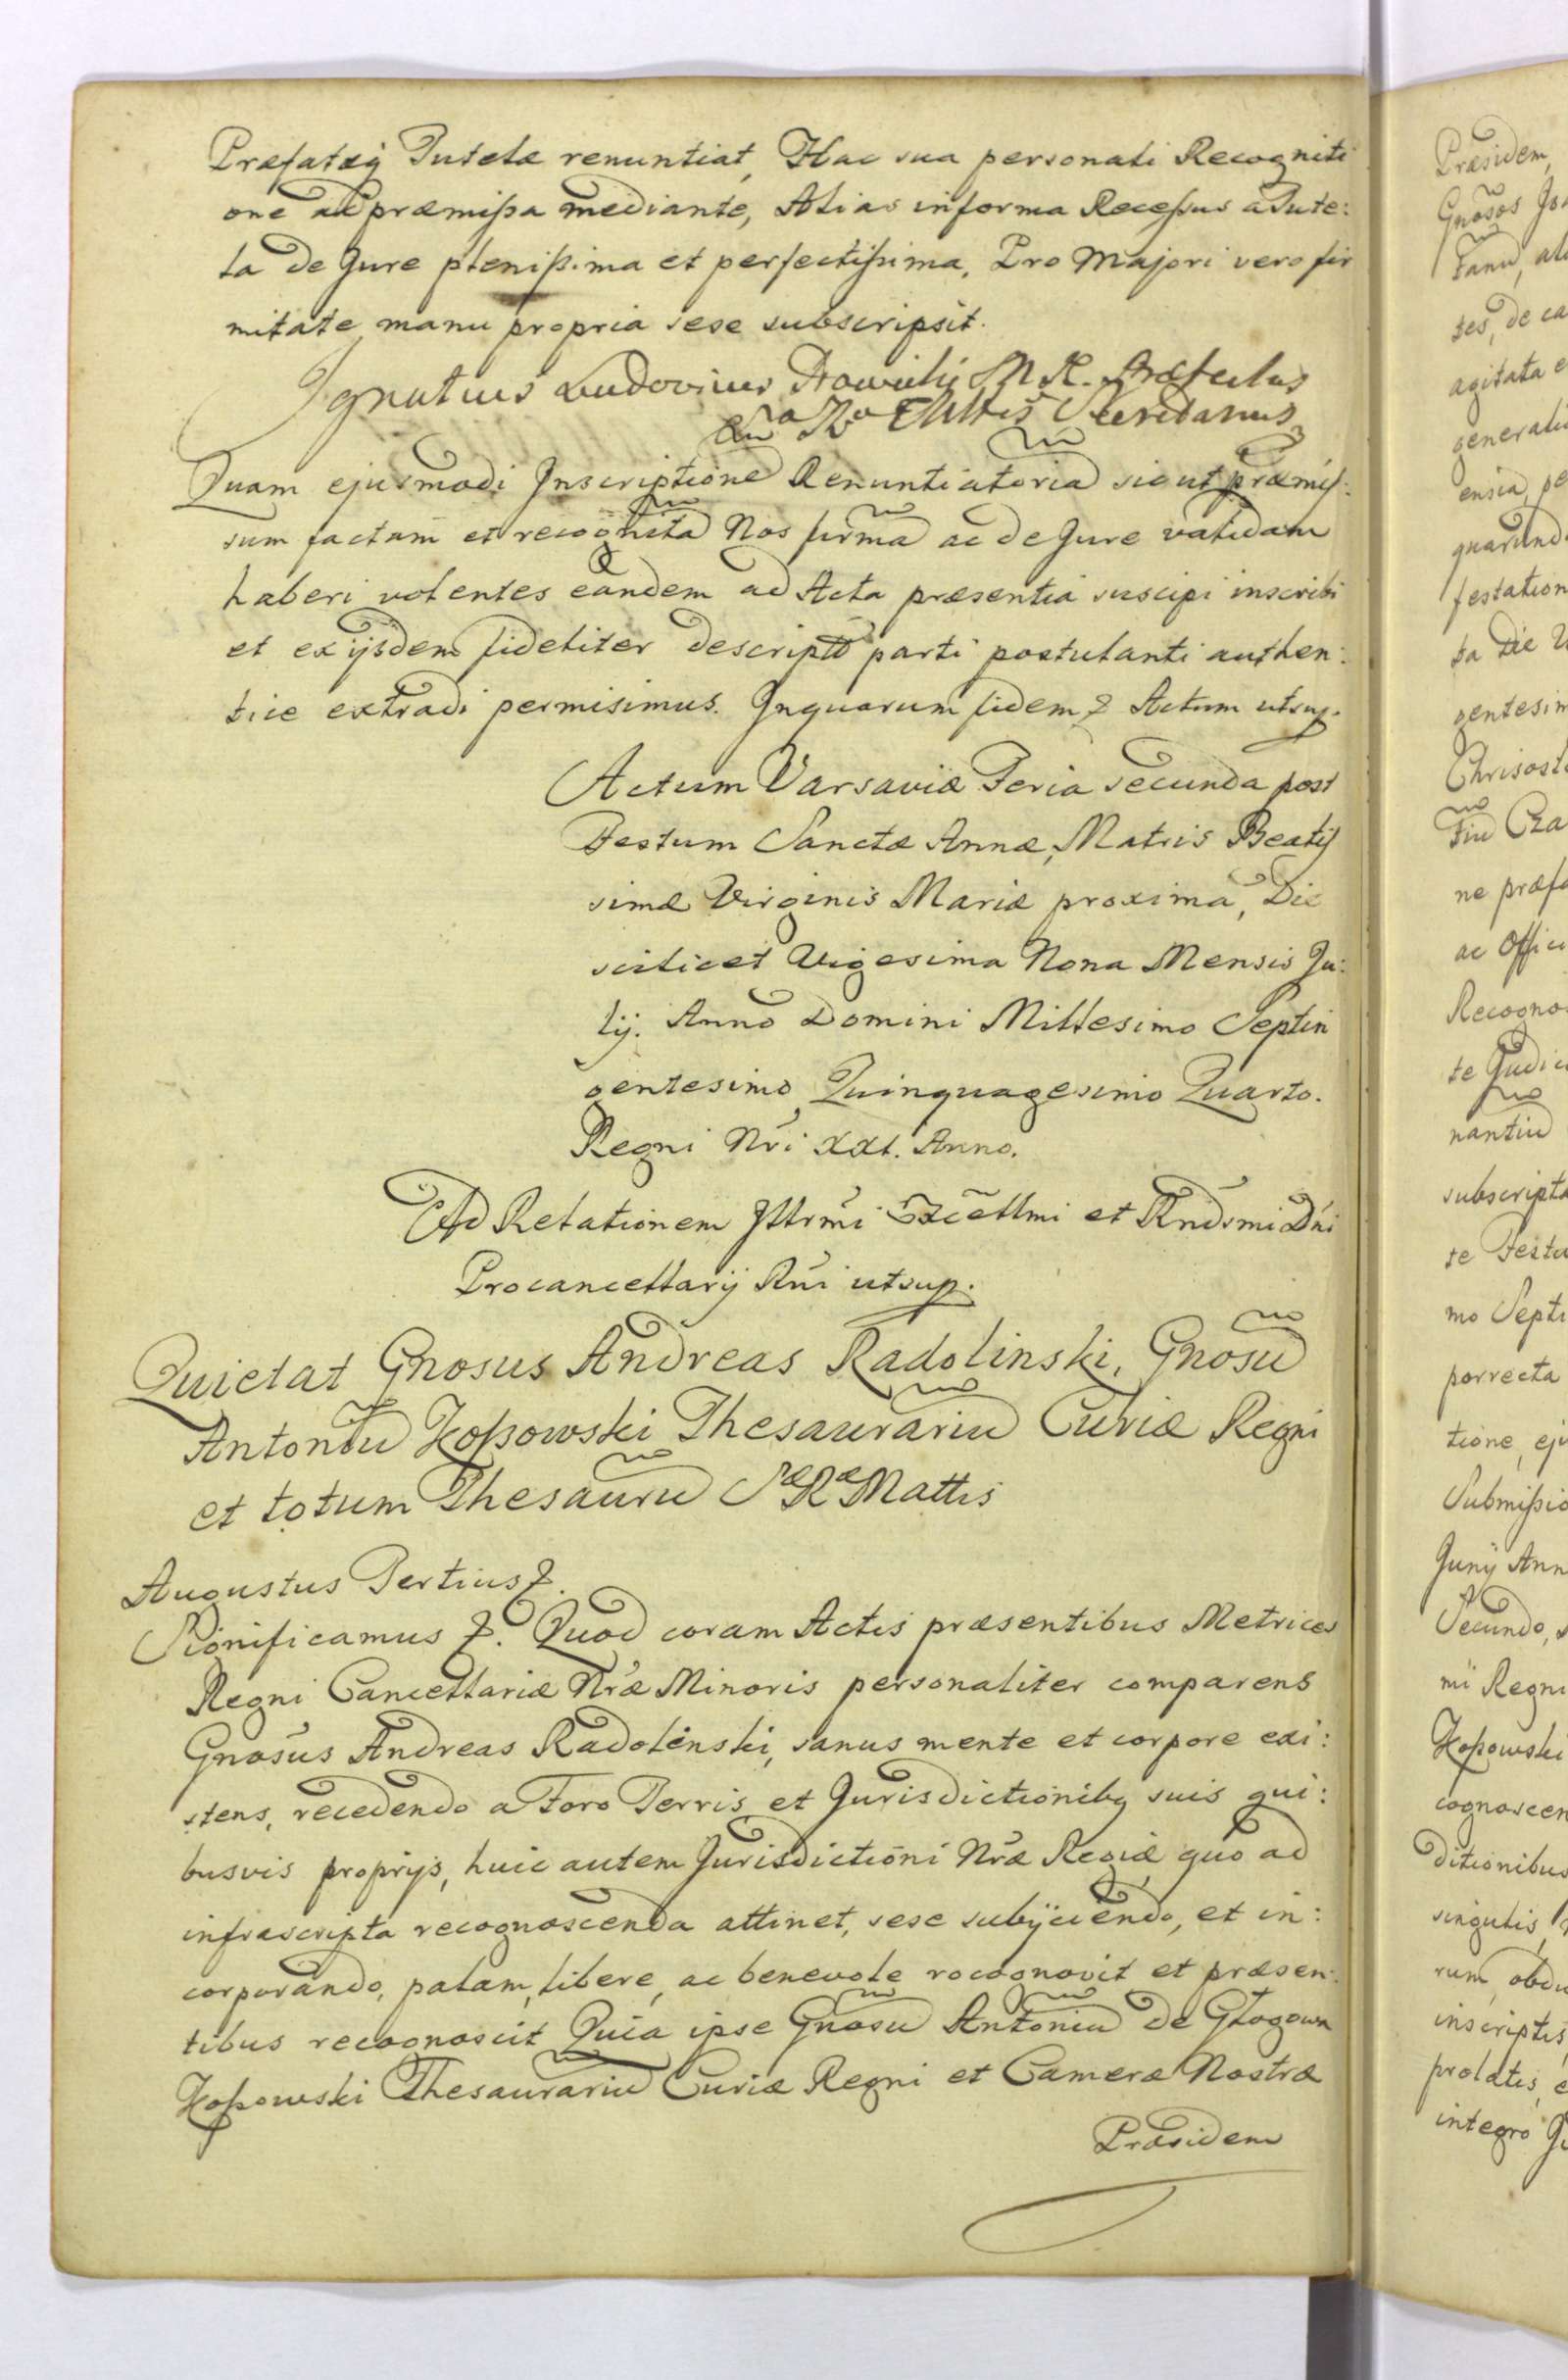 Præfatæq Tutelæ renuntiat, Hac sua personali Recogniti
one ad præmißa mediante, Alias informa Receßus a Tute:
la de Jure plenißima et perfectißima, Pro Majori vero fir
mitate manu propria sese subscripsit.
Ignatius Ludovicus M R. Præfectus
Secretarius
Quam ejusmodi Inscriptionē Renuntiatoriā sicut præmis:
sum factam et recognitā Nos firmā ac de Jure validam
haberi volentes eandem ad Acta præsentia suscipi inscribi
et ex ijsdem fideliter descriptā parti postulanti authen:
tice extradi permisimus. Inquarum fidem & Actum utsup.
Actum Varsaviæ Feria secunda post
Festum Sanctæ Annæ, Matris Beatis
simæ Virginis Mariæ proxima, Die
scilicet Vigesima Nona Mensis Ju:
lij. Anno Domini Millesimo Septin
gentesimo Quinquagesimo Quarto.
Regni Nri XXI. Anno.
Ad Relationem Illrmi Excellmi et Rndsmi Dni
Procancellarij Rni utsup.
Quietat Gnosus Andreas Radolinski, Gnosū
Antoniū Koßowski Thesaurariū Curiæ Regni
et totum Thesaurū Sæ Ræ Mattis
Augustus Tertius &.
Significamus &. Quod coram Actis præsentibus Metrices
Regni Cancellariæ Nræ Minoris personaliter comparens
Gnosus Andreas Radolinski, sanus mente et corpore exi:
stens, recedendo a Foro Terris et Jurisdictionibq suis qui:
busvis proprijs, huic autem Jurisdictioni Nræ Regiæ quo ad
infrascripta recognoscenda attinet, sese subijciendo, et in:
corporando, palam, libere, ac benevole rocognovit et præsen:
tibus recognoscit Quia ipse Gnosū Antoniū de Głogowa
Koßowski Thesaurariū Curiæ Regni et Cameræ Nostræ
Præsidem
Præsidem,
Gnosos
tanū,
tes, de ca
agitata e
generali
ensia, pe
quarund
festation
ta die
gentesim
Chrisost
tiū Cza
ne præf
ac Offici
Recogno
te Judic
nantiū
subscripta
te Festu
mo Septi
porrecta
tione, eju
Submißio
Junij Ann
Secundo,
mi Regni
Koßowski
cognoscen
ditionibus
singulis,
rum, obdu
inscriptis
prolatis, e
integro